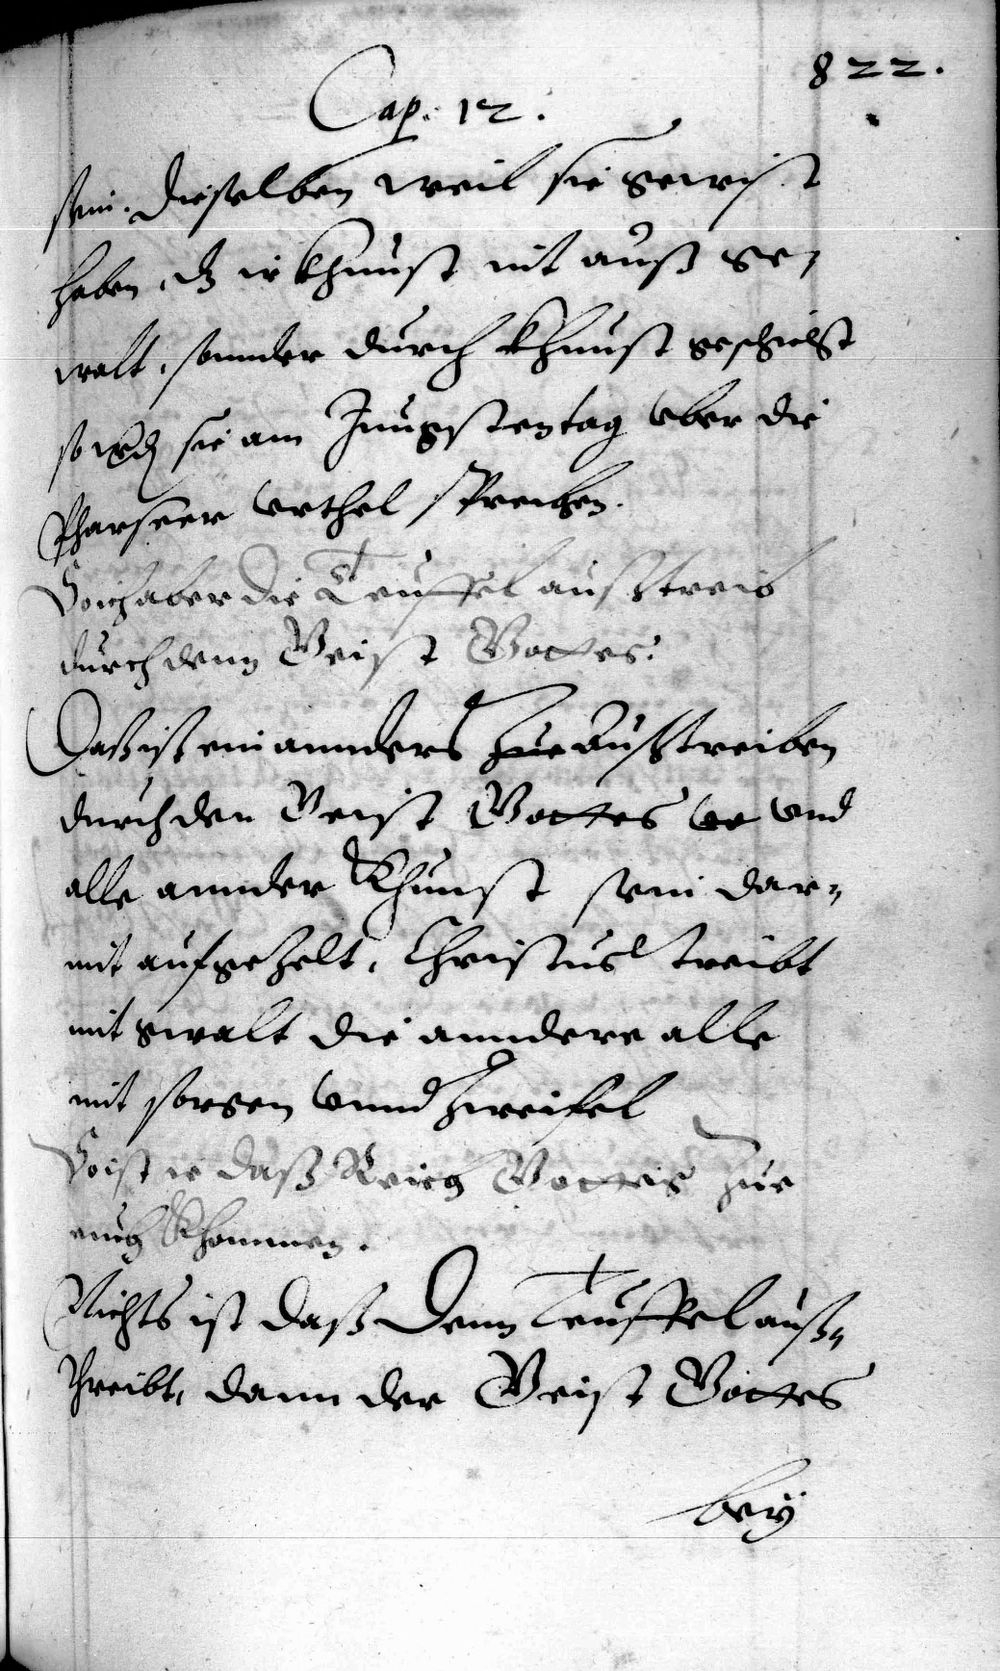 822.
Cap: 12.
sein. dieselben weil sie gewist
haben, dz ir khunst nit auß ge-
walt, sonnder durch khunst geschichst
so wd sie am Jungsten tag vber die
Pharseer vrthel sprechen.
So ich aber die Teuffel außtreib
durch denn Geist Gottes.
Das ist ein annders Zue außtreiben
durch den Geist Gottes vnd
alle annder Khunst sein dar-
mit aufgehelt, Christus treibt
mit gwalt die anndere alle
mit sorgen vnnd Zweifel
So ist ie daß Reich Gottes Zue
euch Khommen.
Nichts ist daß denn Teuffel auß-
threibt, dann der Geist Gottes
bey